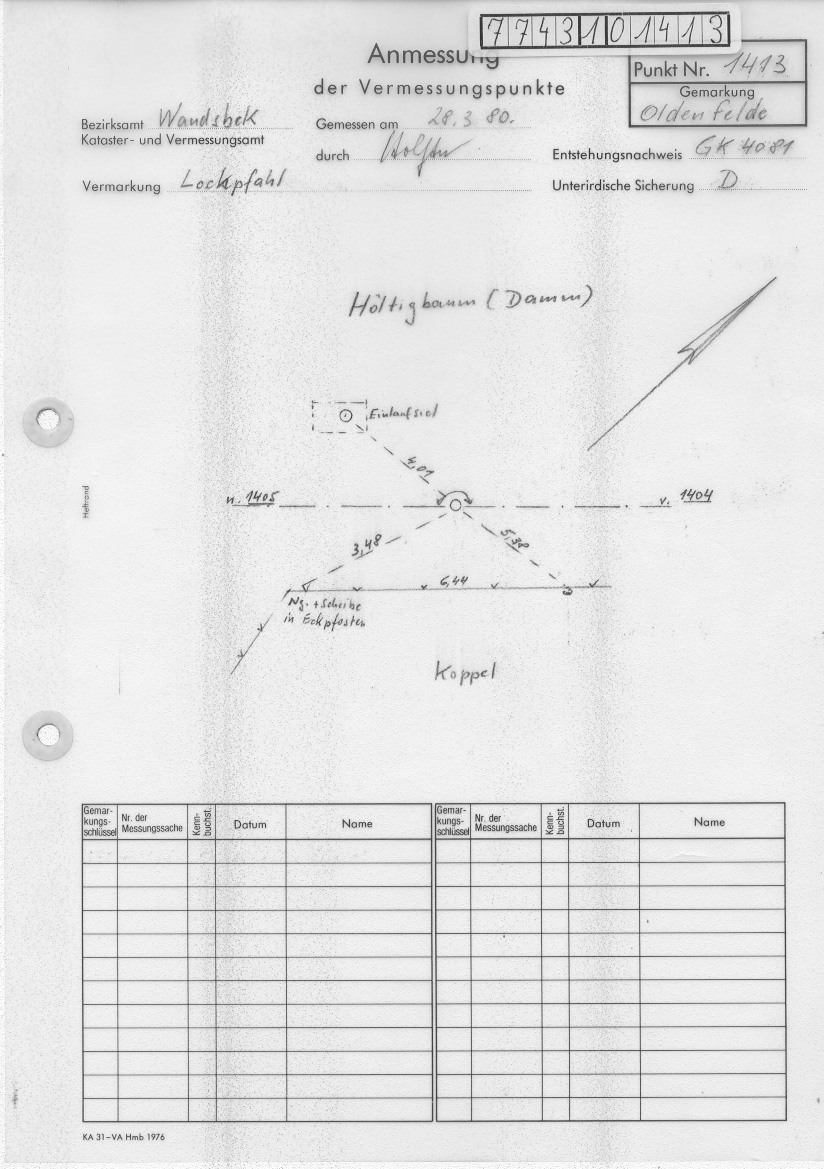 7743101413
Anmessung
der Vermessungspunkte
Punkt Nr. 1413
Gemarkung
Oldenfelde
Bezirksamt Wandsbek
Kataster- und Vermessungsamt
Gemessen am 28.3.80.
durch
Entstehungsnachweis GK 4081
Vermarkung Lochpfahl
Unterirdische Sicherung D
Höltigbaum (Damm)
Einlaufsiel
4,01
n. 1405
v. 1404
3,48
5,38
6,44
Ng. + Scheibe
in Eckpfosten
Koppel
Heftrand
Gemar-
kungs-
schlüssel
Nr. der
Messungssache
Kenn-
buchst.
Datum
Name
Gemar-
kungs-
schlüssel
Nr. der
Messungssache
Kenn-
buchst.
Datum
Name
KA 31–VA Hmb 1976